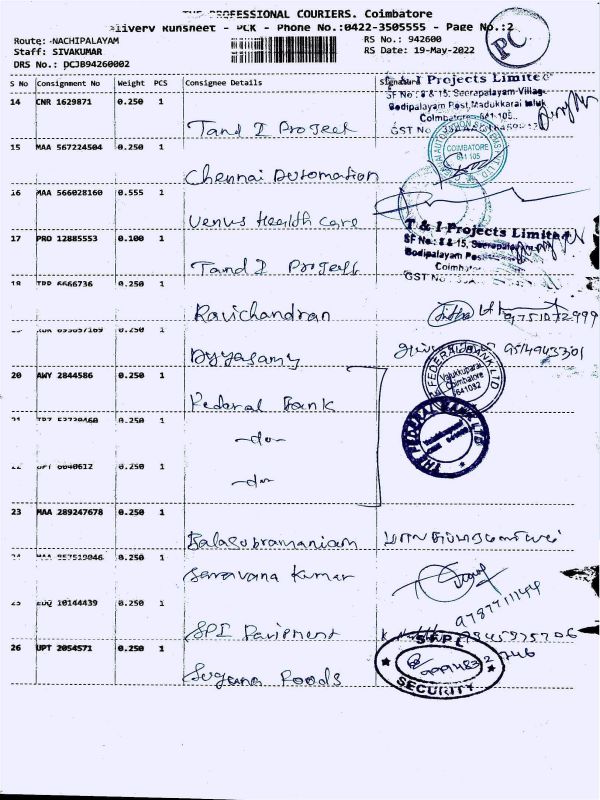 THE PROFESSIONAL COURIERS. Coimbatore
Delivery Runsheet - PCK - Phone No.:0422-3505555 - Page No.:2
PC
Route: NACHIPALAYAM
RS No.: 942600
Staff: SIVAKUMAR
RS Date: 19-May-2022
DRS No.: PCJB94260002
S No Consignment No Weight PCS Consignee Details Signature
14 CNR 1629871 0.250 1
T and I Project
T & I Projects Limited
SF No : 8 & 15, Seerapalayam Village
Bodipalayam Post, Madukkarai taluk
Coimbatore - 641 105.
GST No
15 MAA 567224504 0.250 1
Chennai Automation
COIMBATORE
641 105
16 MAA 566028160 0.555 1
Venus Health Care
17 PRO 12885553 0.100 1
T and I Project
T & I Projects Limited
SF No : 8 & 15, Seerapalayam
Bodipalayam Post
Coimb
GST No
18 6666736 0.250 1
Ravichandran
0.250 1
Ayyasamy
9514943301
20 AWY 2844586 0.250 1
Federal Bank
FEDERAL BANK LTD
Coimbatore
641032
0.250 1
-do-
THE FEDERAL BANK LTD
0.250 1
-do-
23 MAA 289247678 0.250 1
Balasubramaniam
0.250 1
Saravana Kumar
9787711144
25 EDQ 10144439 0.250 1
SPI Pavement
26 UPT 2054571 0.250 1
Suguna Foods
SFPL
SECURITY